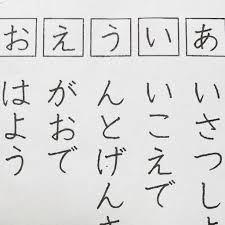 あいさつしよ
いこえで
うんとげんき
えがおで
おはよう